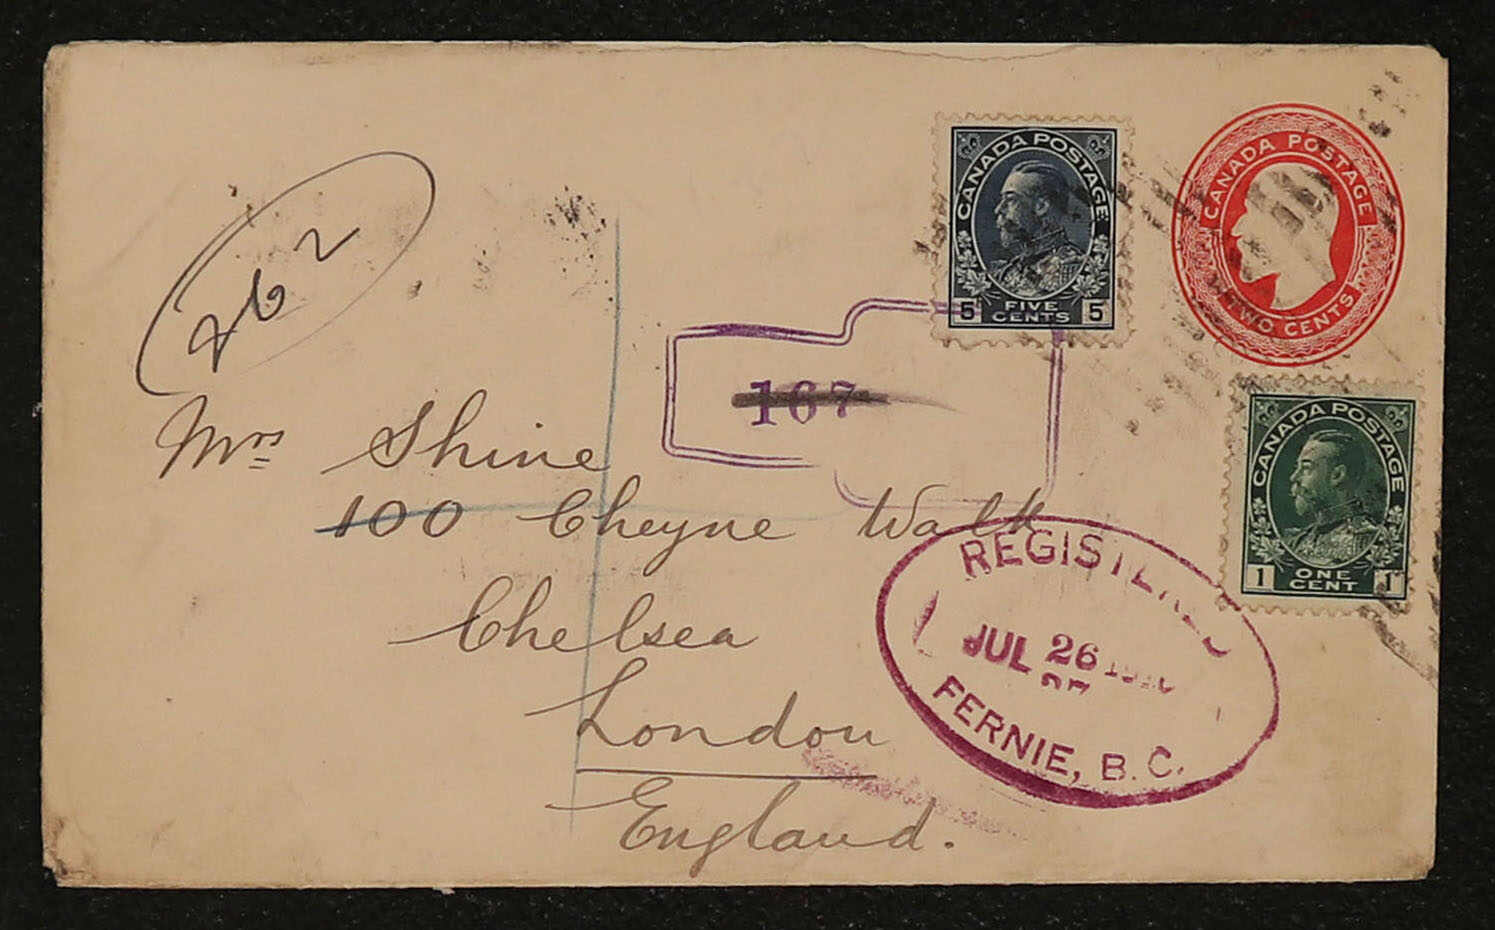 CANADA POSTAGE
5 FIVE CENTS 5
CANADA POSTAGE
TWO CENTS
262
167
CANADA POSTAGE
1 ONE CENT 1
Mrs Shine
100 Cheyne Walk
Chelsea
London
England.
REGISTERED
JUL 26
FERNIE, B.C.